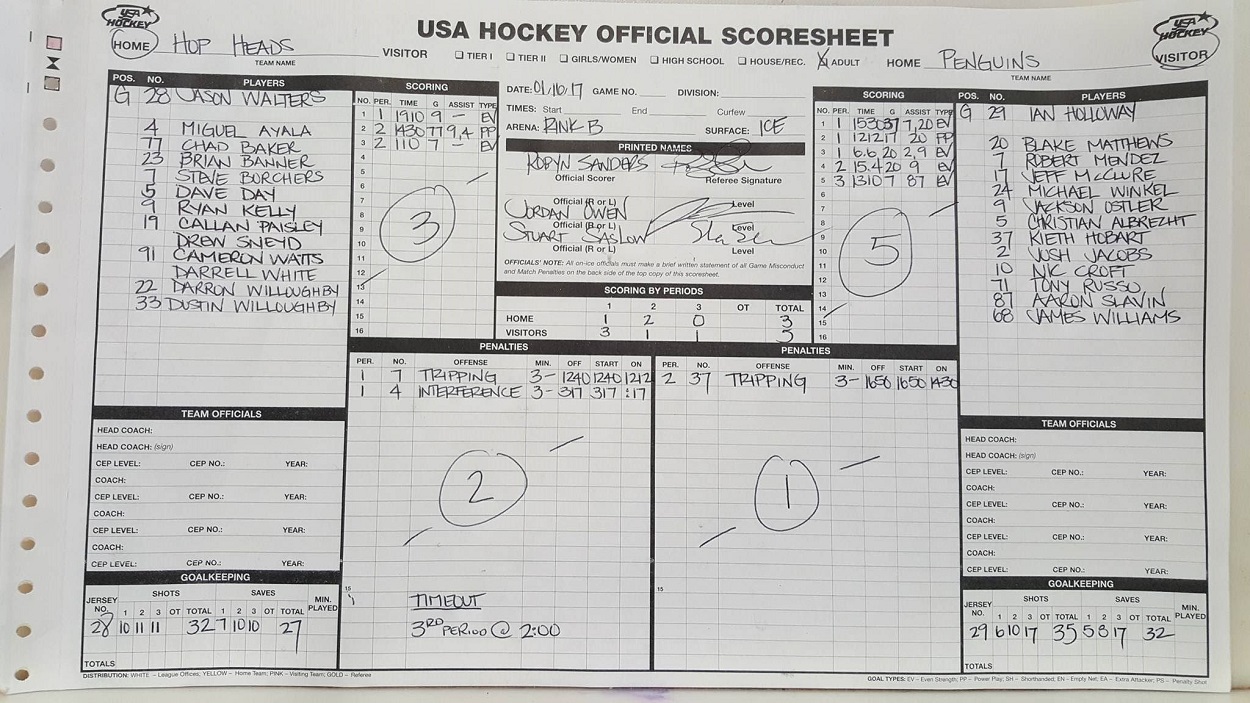 USA HOCKEY
USA HOCKEY
USA HOCKEY OFFICIAL SCORESHEET
HOME HOP HEADS VISITOR
TEAM NAME
☐ TIER I ☐ TIER II ☐ GIRLS/WOMEN ☐ HIGH SCHOOL ☐ HOUSE/REC. ☒ ADULT
HOME PENGUINS VISITOR
TEAM NAME
POS. NO. PLAYERS
G 28 JASON WALTERS
4 MIGUEL AYALA
77 CHAD BAKER
23 BRIAN BANNER
7 STEVE BORCHERS
5 DAVE DAY
9 RYAN KELLY
19 CALLAN PAISLEY
DREW SNEYD
91 CAMERON WATTS
DARRELL WHITE
22 DARRON WILLOUGHBY
33 DUSTIN WILLOUGHBY
SCORING
NO. PER. TIME G ASSIST TYPE
1 1 1910 9 – EV
2 2 1430 77 9,4 PP
3 2 110 7 – EV
4
5
6
7
8
9
10
11
12
13
14
15
16
3
DATE: 01/10/17 GAME NO. DIVISION:
TIMES: Start End Curfew
ARENA: RINK B SURFACE: ICE
PRINTED NAMES
ROBYN SANDERS
Official Scorer Referee Signature
Official (R or L) Level
JORDAN OWEN
Official (R or L) Level
STUART SASLOW
Official (R or L) Level
OFFICIALS' NOTE: All on-ice officials must make a brief written statement of all Game Misconduct
and Match Penalties on the back side of the top copy of this scoresheet.
SCORING BY PERIODS
1 2 3 OT TOTAL
HOME 1 2 0 3
VISITORS 3 1 1 5
SCORING
NO. PER. TIME G ASSIST TYPE
1 1 1530 37 7,20 EV
2 1 1212 17 20 PP
3 1 6.6 20 2,9 EV
4 2 15.4 20 9 EV
5 3 1310 7 87 EV
6
7
8
9
10
11
12
13
14
15
16
5
POS. NO. PLAYERS
G 29 IAN HOLLOWAY
20 BLAKE MATTHEWS
7 ROBERT MENDEZ
17 JEFF McCLURE
24 MICHAEL WINKEL
9 JACKSON OSTLER
5 CHRISTIAN ALBREZHT
37 KIETH HOBART
2 JOSH JACOBS
10 NIC CROFT
71 TONY RUSSO
87 AARON SLAVIN
68 JAMES WILLIAMS
PENALTIES
PER. NO. OFFENSE MIN. OFF START ON
1 7 TRIPPING 3- 1240 1240 1212
1 4 INTERFERENCE 3- 317 317 :17
2
15
TIMEOUT
3RD PERIOD @ 2:00
PENALTIES
PER. NO. OFFENSE MIN. OFF START ON
2 37 TRIPPING 3- 1650 1650 1430
1
15
TEAM OFFICIALS
HEAD COACH:
HEAD COACH: (sign)
CEP LEVEL: CEP NO.: YEAR:
COACH:
CEP LEVEL: CEP NO.: YEAR:
COACH:
CEP LEVEL: CEP NO.: YEAR:
COACH:
CEP LEVEL: CEP NO.: YEAR:
GOALKEEPING
JERSEY NO. SHOTS SAVES MIN. PLAYED
1 2 3 OT TOTAL 1 2 3 OT TOTAL
28 10 11 11 32 7 10 10 27
TOTALS
TEAM OFFICIALS
HEAD COACH:
HEAD COACH: (sign)
CEP LEVEL: CEP NO.: YEAR:
COACH:
CEP LEVEL: CEP NO.: YEAR:
COACH:
CEP LEVEL: CEP NO.: YEAR:
COACH:
CEP LEVEL: CEP NO.: YEAR:
GOALKEEPING
JERSEY NO. SHOTS SAVES MIN. PLAYED
1 2 3 OT TOTAL 1 2 3 OT TOTAL
29 6 10 17 35 5 8 17 32
TOTALS
DISTRIBUTION: WHITE – League Offices; YELLOW – Home Team; PINK – Visiting Team; GOLD – Referee
GOAL TYPES: EV – Even Strength; PP – Power Play; SH – Shorthanded; EN – Empty Net; EA – Extra Attacker; PS – Penalty Shot